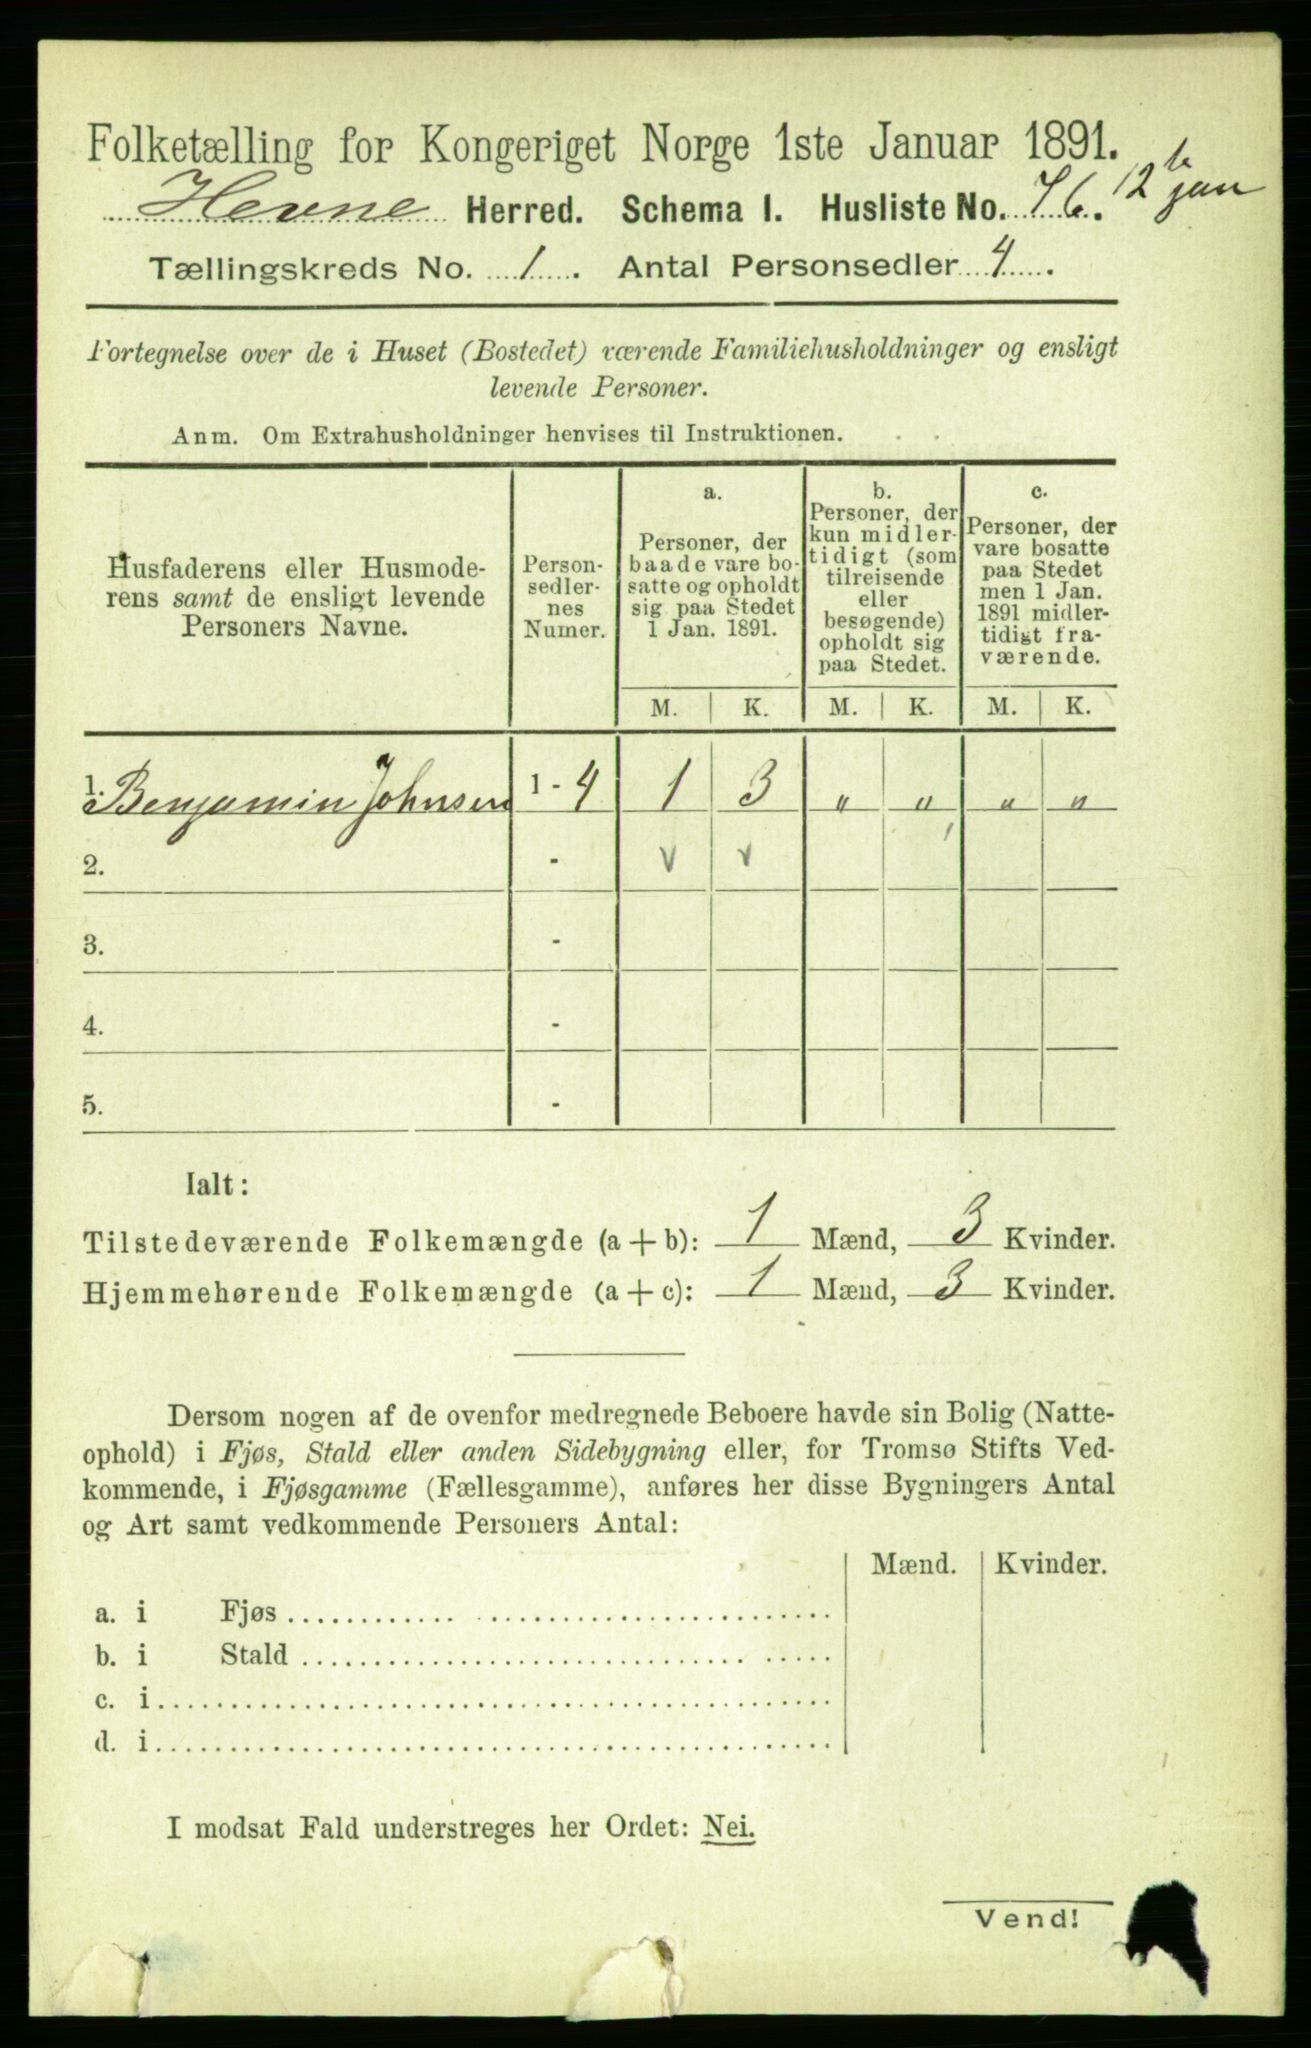 Folketælling for Kongeriget Norge 1ste Januar 1891.
Hevne Herred. Schema I. Husliste No. 76. 12te jan
Tællingskreds No. 1. Antal Personsedler 4.
Fortegnelse over de i Huset (Bostedet) værende Familiehusholdninger og ensligt
levende Personer.
Anm. Om Extrahusholdninger henvises til Instruktionen.
Husfaderens eller Husmode-
rens samt de ensligt levende
Personers Navne.
Person-
sedler-
nes
Numer.
a.
Personer, der
baade vare bo-
satte og opholdt
sig paa Stedet
1 Jan. 1891.
b.
Personer, der
kun midler-
tidigt (som
tilreisende
eller
besøgende)
opholdt sig
paa Stedet.
c.
Personer, der
vare bosatte
paa Stedet
men 1 Jan.
1891 midler-
tidigt fra-
værende.
M. K. M. K. M. K.
1. Benjamin Johnsen 1 - 4 1 3 " " " "
2. - v v
3. -
4. -
5. -
Ialt:
Tilstedeværende Folkemængde (a + b): 1 Mænd, 3 Kvinder.
Hjemmehørende Folkemængde (a + c): 1 Mænd, 3 Kvinder.
Dersom nogen af de ovenfor medregnede Beboere havde sin Bolig (Natte-
ophold) i Fjøs, Stald eller anden Sidebygning eller, for Tromsø Stifts Ved-
kommende, i Fjøsgamme (Fællesgamme), anføres her disse Bygningers Antal
og Art samt vedkommende Personers Antal:
Mænd. Kvinder.
a. i Fjøs
b. i Stald
c. i
d. i
I modsat Fald understreges her Ordet: Nei.
Vend!